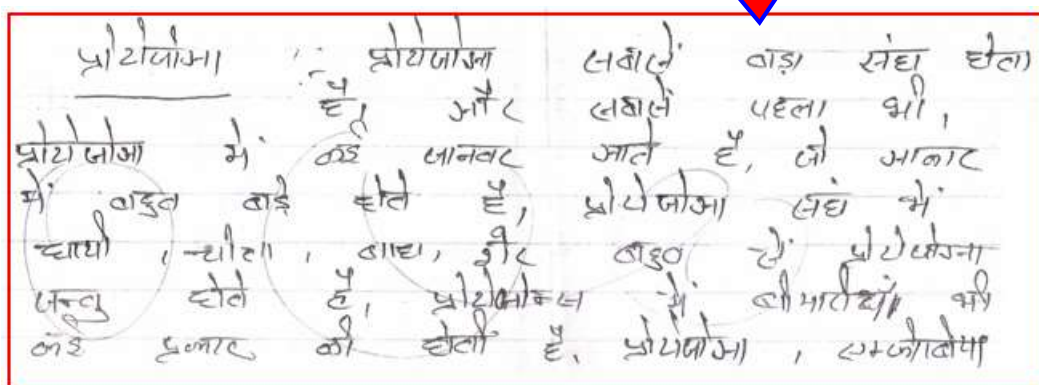 प्रोटोजोआ : प्रोटोजोआ सबसें बाड़ा संघ होता
है, और सबसें पहला भी,
प्रोटोजोआ में कई जानवर आते है, जो आकार
में बाहुत बाड़े होते है, प्रोटोजोआ संघ में
हाथी, चीता, बाघ, शेर बाहुत से प्रोटोजोआ
जन्तु होते है, में बीमारीयां भी
कई प्रकार की होती है. प्रोटोजोआ,